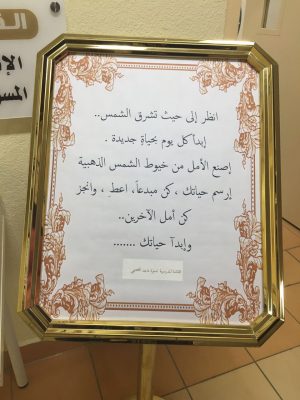 انظر إلى حيث تشرق الشمس..
إبدأ كل يوم بحياةٍ جديدة .
إصنع الأمل من خيوط الشمس الذهبية
إرسم حياتك , كن مبدعاً , اعطِ , وانجز
كن أمل الآخرين..
وإبدآ حياتك .......